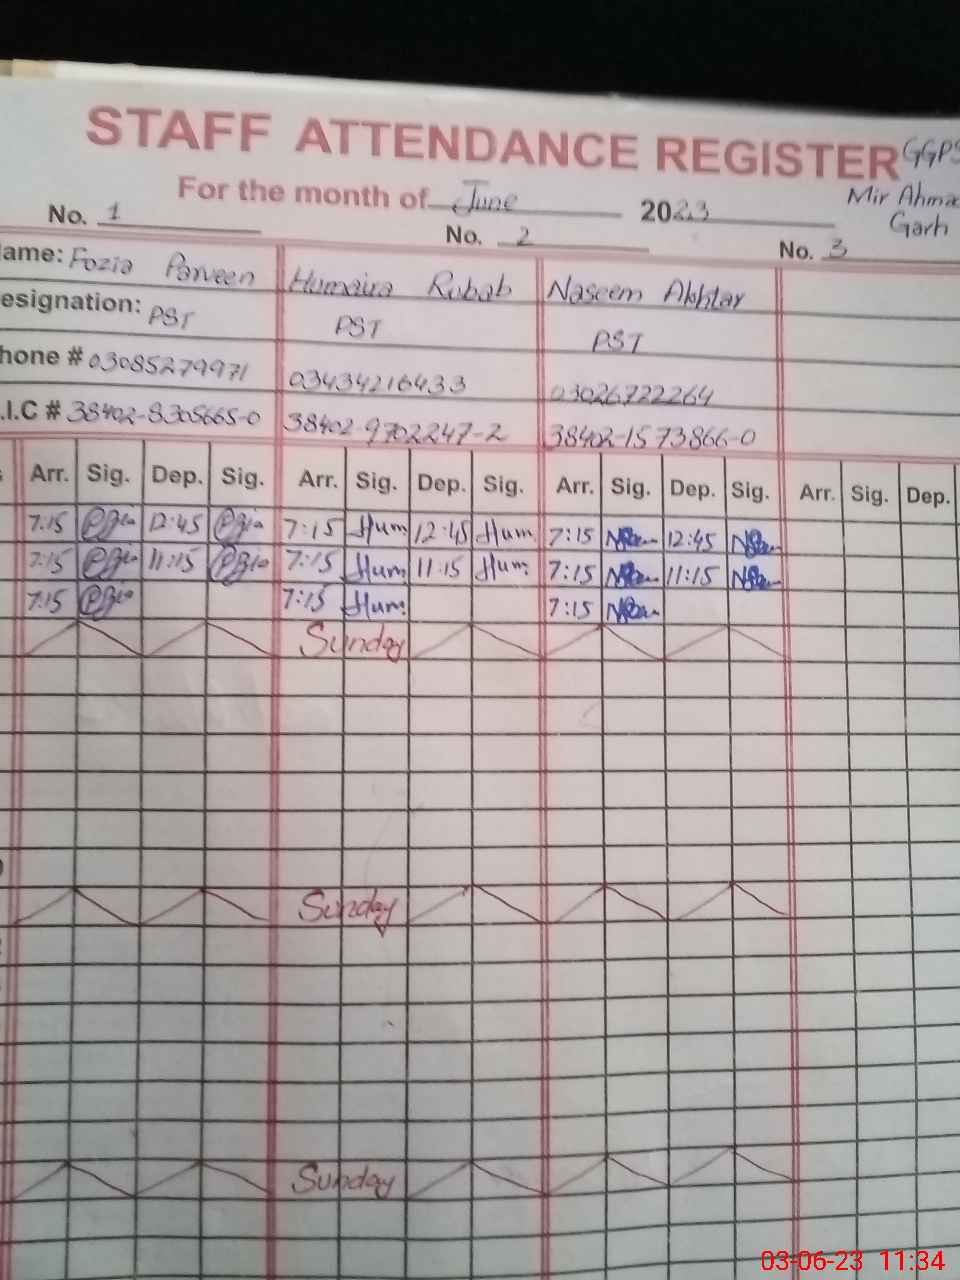 STAFF ATTENDANCE REGISTER GGPS
For the month of June 2023 Mir Ahmad
Garh
No. 1 No. 2 No. 3
ame: Fozia Parveen Humaira Rubab Naseem Akhtar
esignation: PST PST PST
hone # 03085279971 03434216433 03026722264
.I.C # 38402-8305665-0 38402-9702247-2 38402-1573866-0
Arr. Sig. Dep. Sig. Arr. Sig. Dep. Sig. Arr. Sig. Dep. Sig. Arr. Sig. Dep.
7:15 12:45 7:15 Hum 12:45 Hum 7:15 12:45
7:15 11:15 7:15 Hum 11:15 Hum 7:15 11:15
7:15 7:15 Hum 7:15
Sunday
Sunday
Sunday
03-06-23 11:34